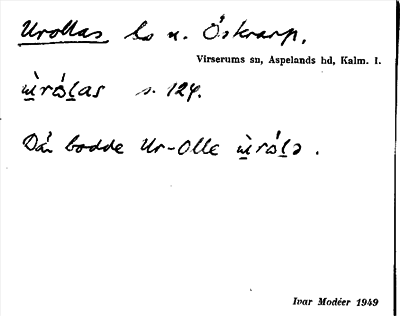 Urollas ls n. Öskrarp.
Virserums sn, Aspelands hd, Kalm. l.
s. 124.
Där bodde Ur-Olle
Ivar Modéer 1949